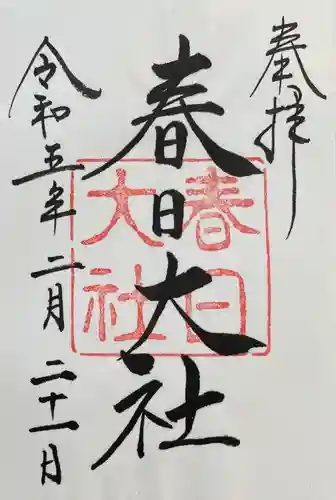 奉拝
春日大社
春日
大社
令和五年二月二十一日